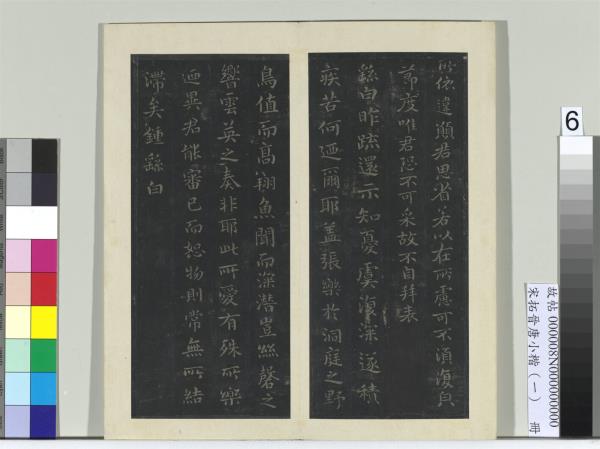 所依違願君思省若以在所慮可不須復皃
節度唯君恐不可采故不自拜表
繇白昨疏還示知憂虞復深遂積
疾苦何迺爾耶蓋張樂於洞庭之野
鳥值而高翔魚聞而深潛豈絲磬之
響雲英之奏非耶此所愛有殊所樂
迺異君能審己而恕物則常無所結
滯矣鍾繇白
6
故帖 000008N000000000
宋拓晉唐小楷（一） 冊